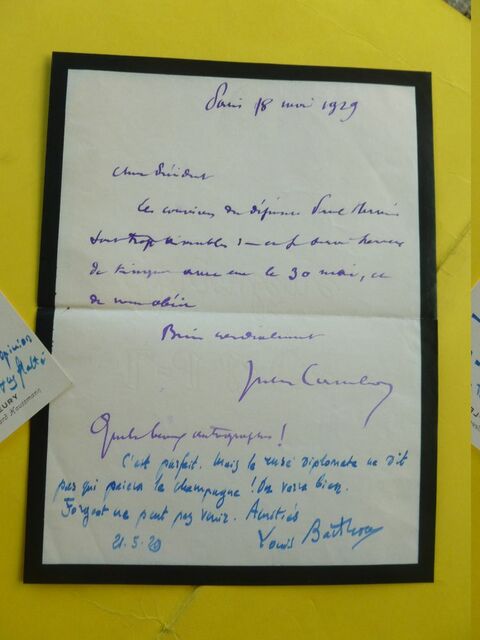 Paris 18 mai 1929
Cher Président
Les convives du défenseur Paul
sont trop aimables : — et je serai heureux
de trinquer avec eux le 30 mai, et
de vous obéir
Bien cordialement
Jules Cambon
Quels beaux autographes !
C'est parfait. Mais le rusé diplomate ne dit
pas qui paiera le champagne ! On verra bien.
Forgeot ne peut pas venir. Amitiés
21.5.29 Louis Barthou
opinion
EURY
ard Haussmann